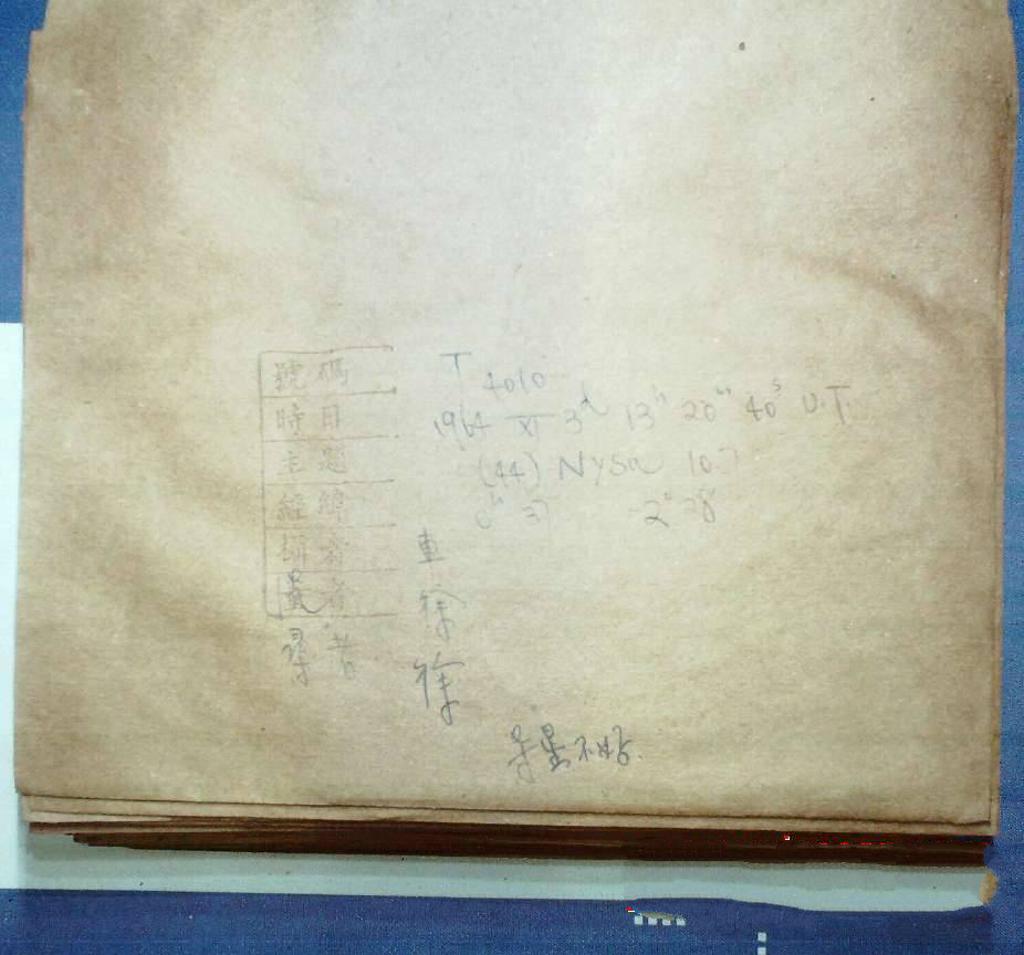 號碼 T 4010
時日 1964 XI 3ᵈ 13ʰ 20ᵐ 40ˢ U.T.
主題 (44) Nysa 10.7
經緯 0ʰ 37 -2° 28'
攝者 車
量者 徐
尋者 徐
尋星不好.